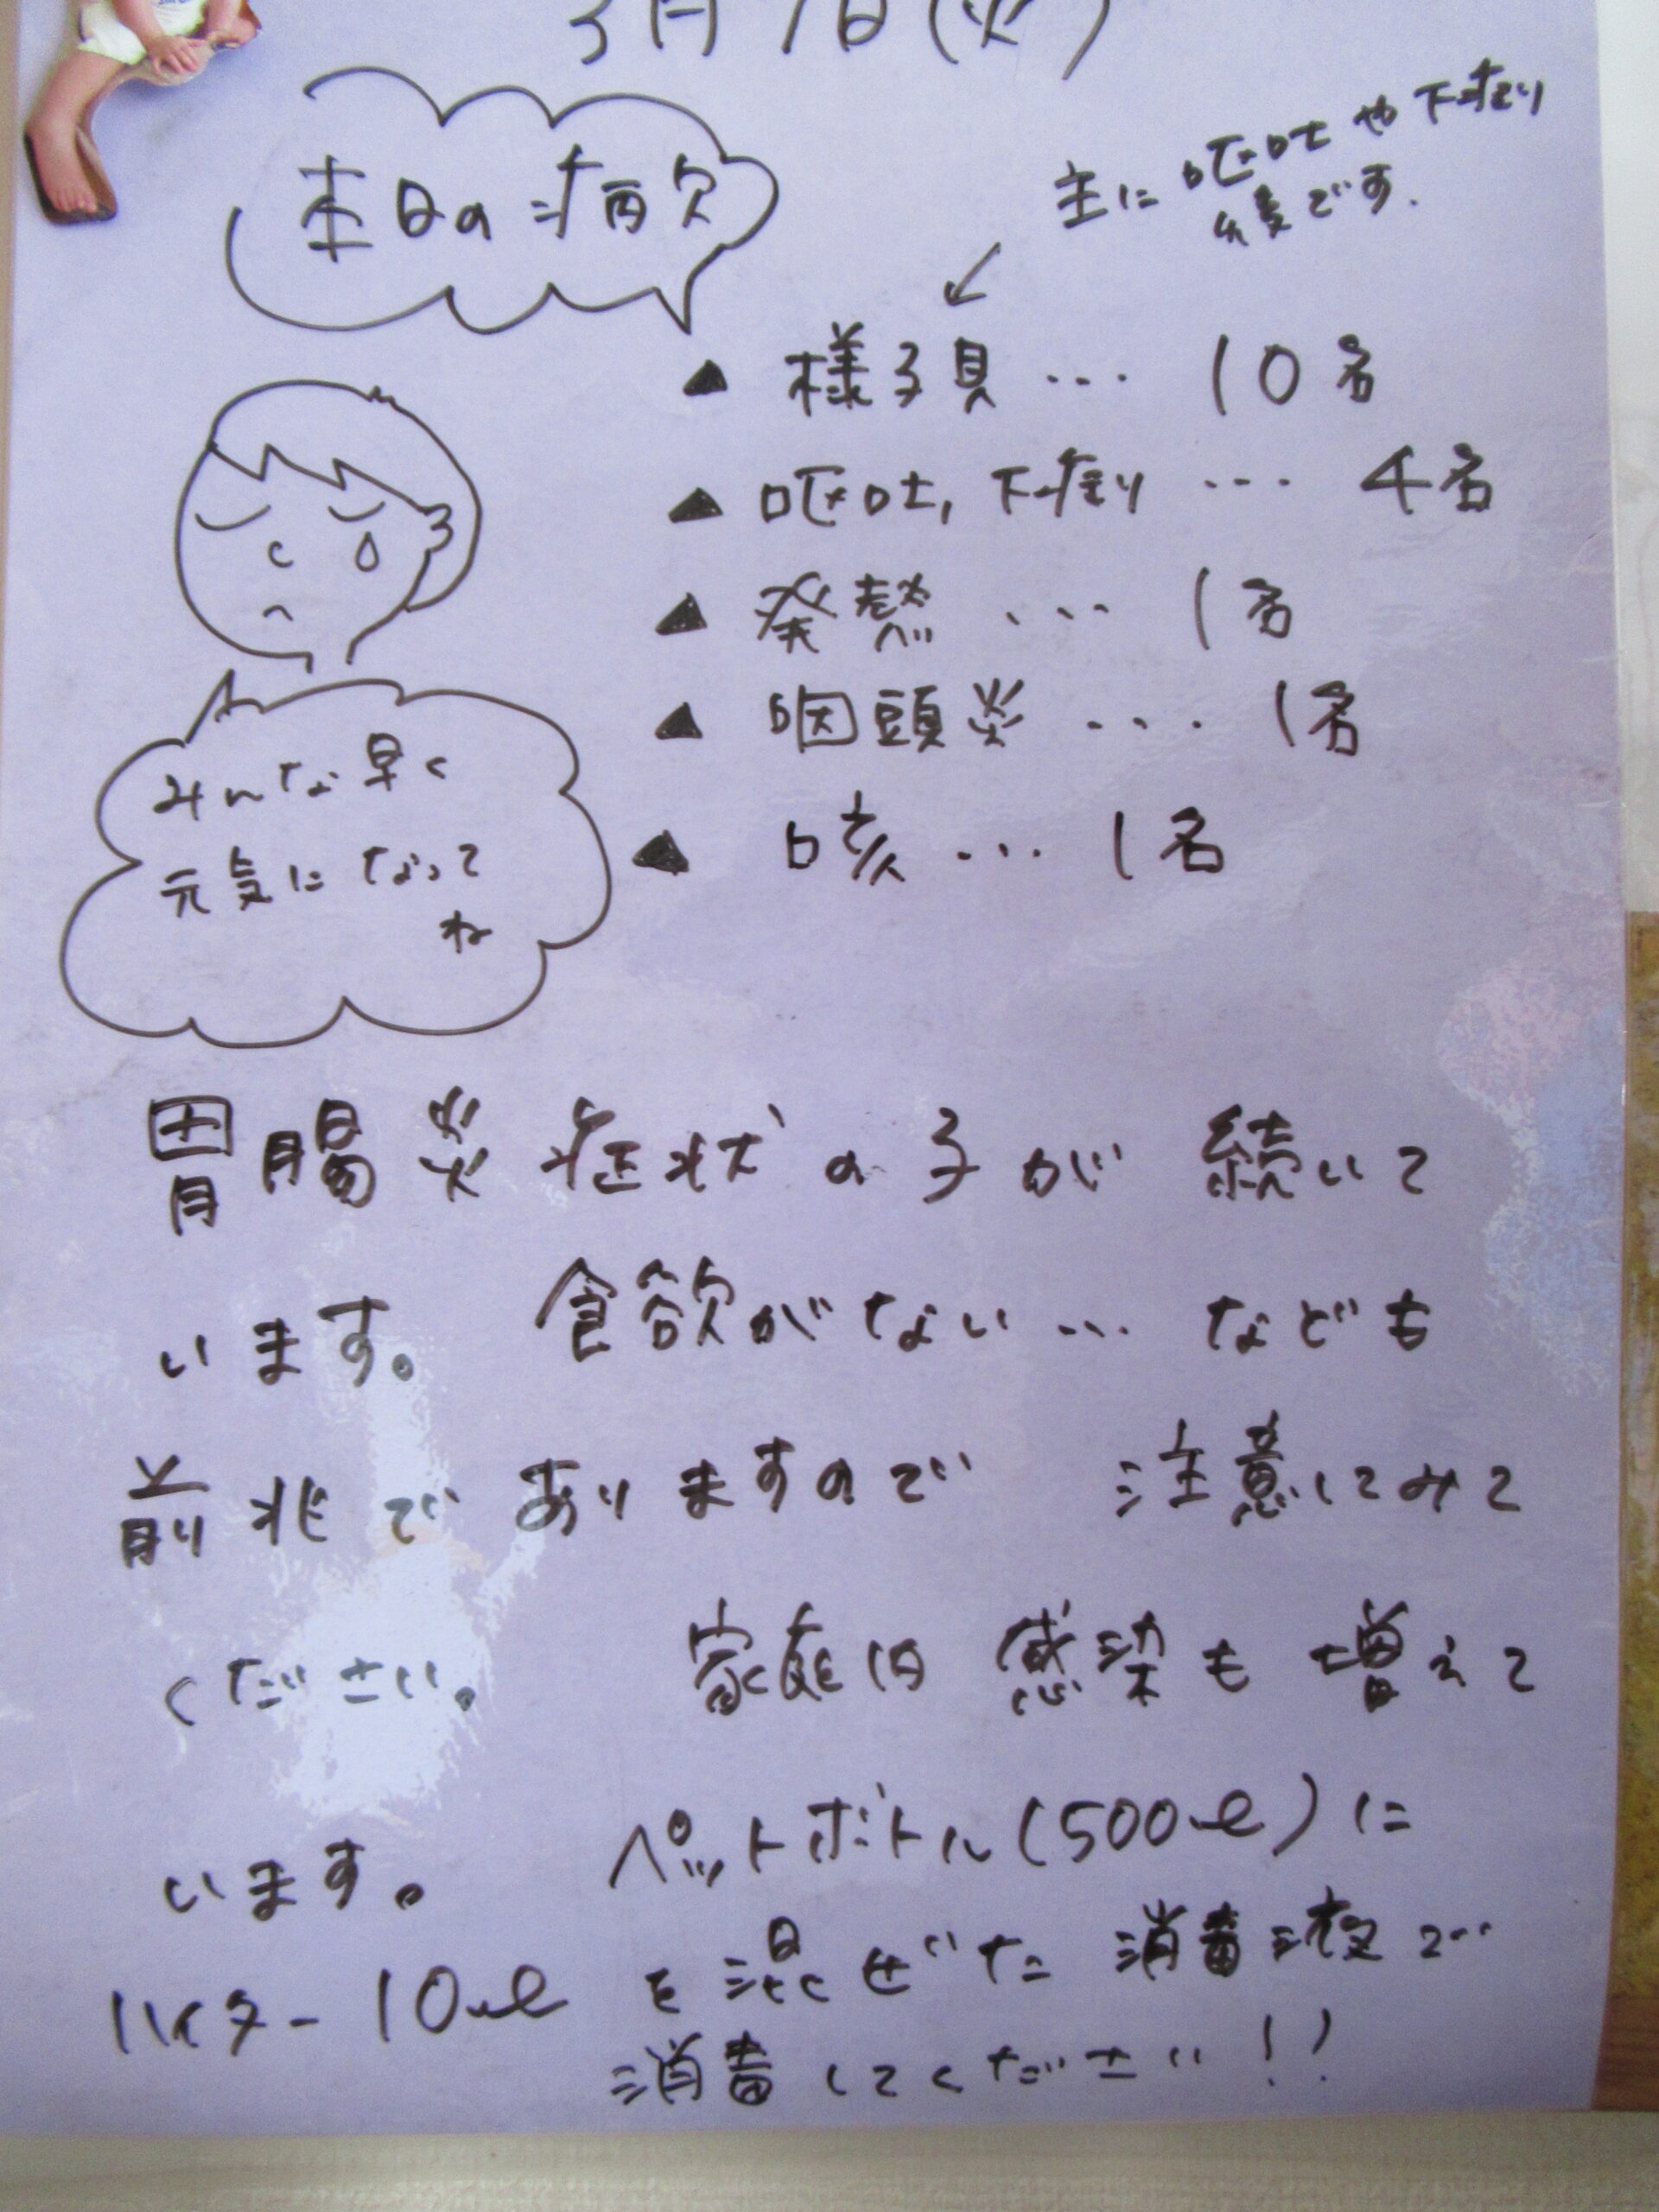 3月7日(火)
本日の病欠
主に嘔吐や下痢
後です.
▲ 様子見 … 10名
▲ 嘔吐, 下痢 … 4名
▲ 発熱 … 1名
▲ 咽頭炎 … 1名
▲ 咳 … 1名
みんな早く
元気になって
ね
胃腸炎症状の子が続いて
います。 食欲がない… なども
前兆でありますので 注意してみて
ください。 家庭内感染も増えて
います。 ペットボトル(500ml)に
ハイター10mlを混ぜた消毒液で
消毒してください!!